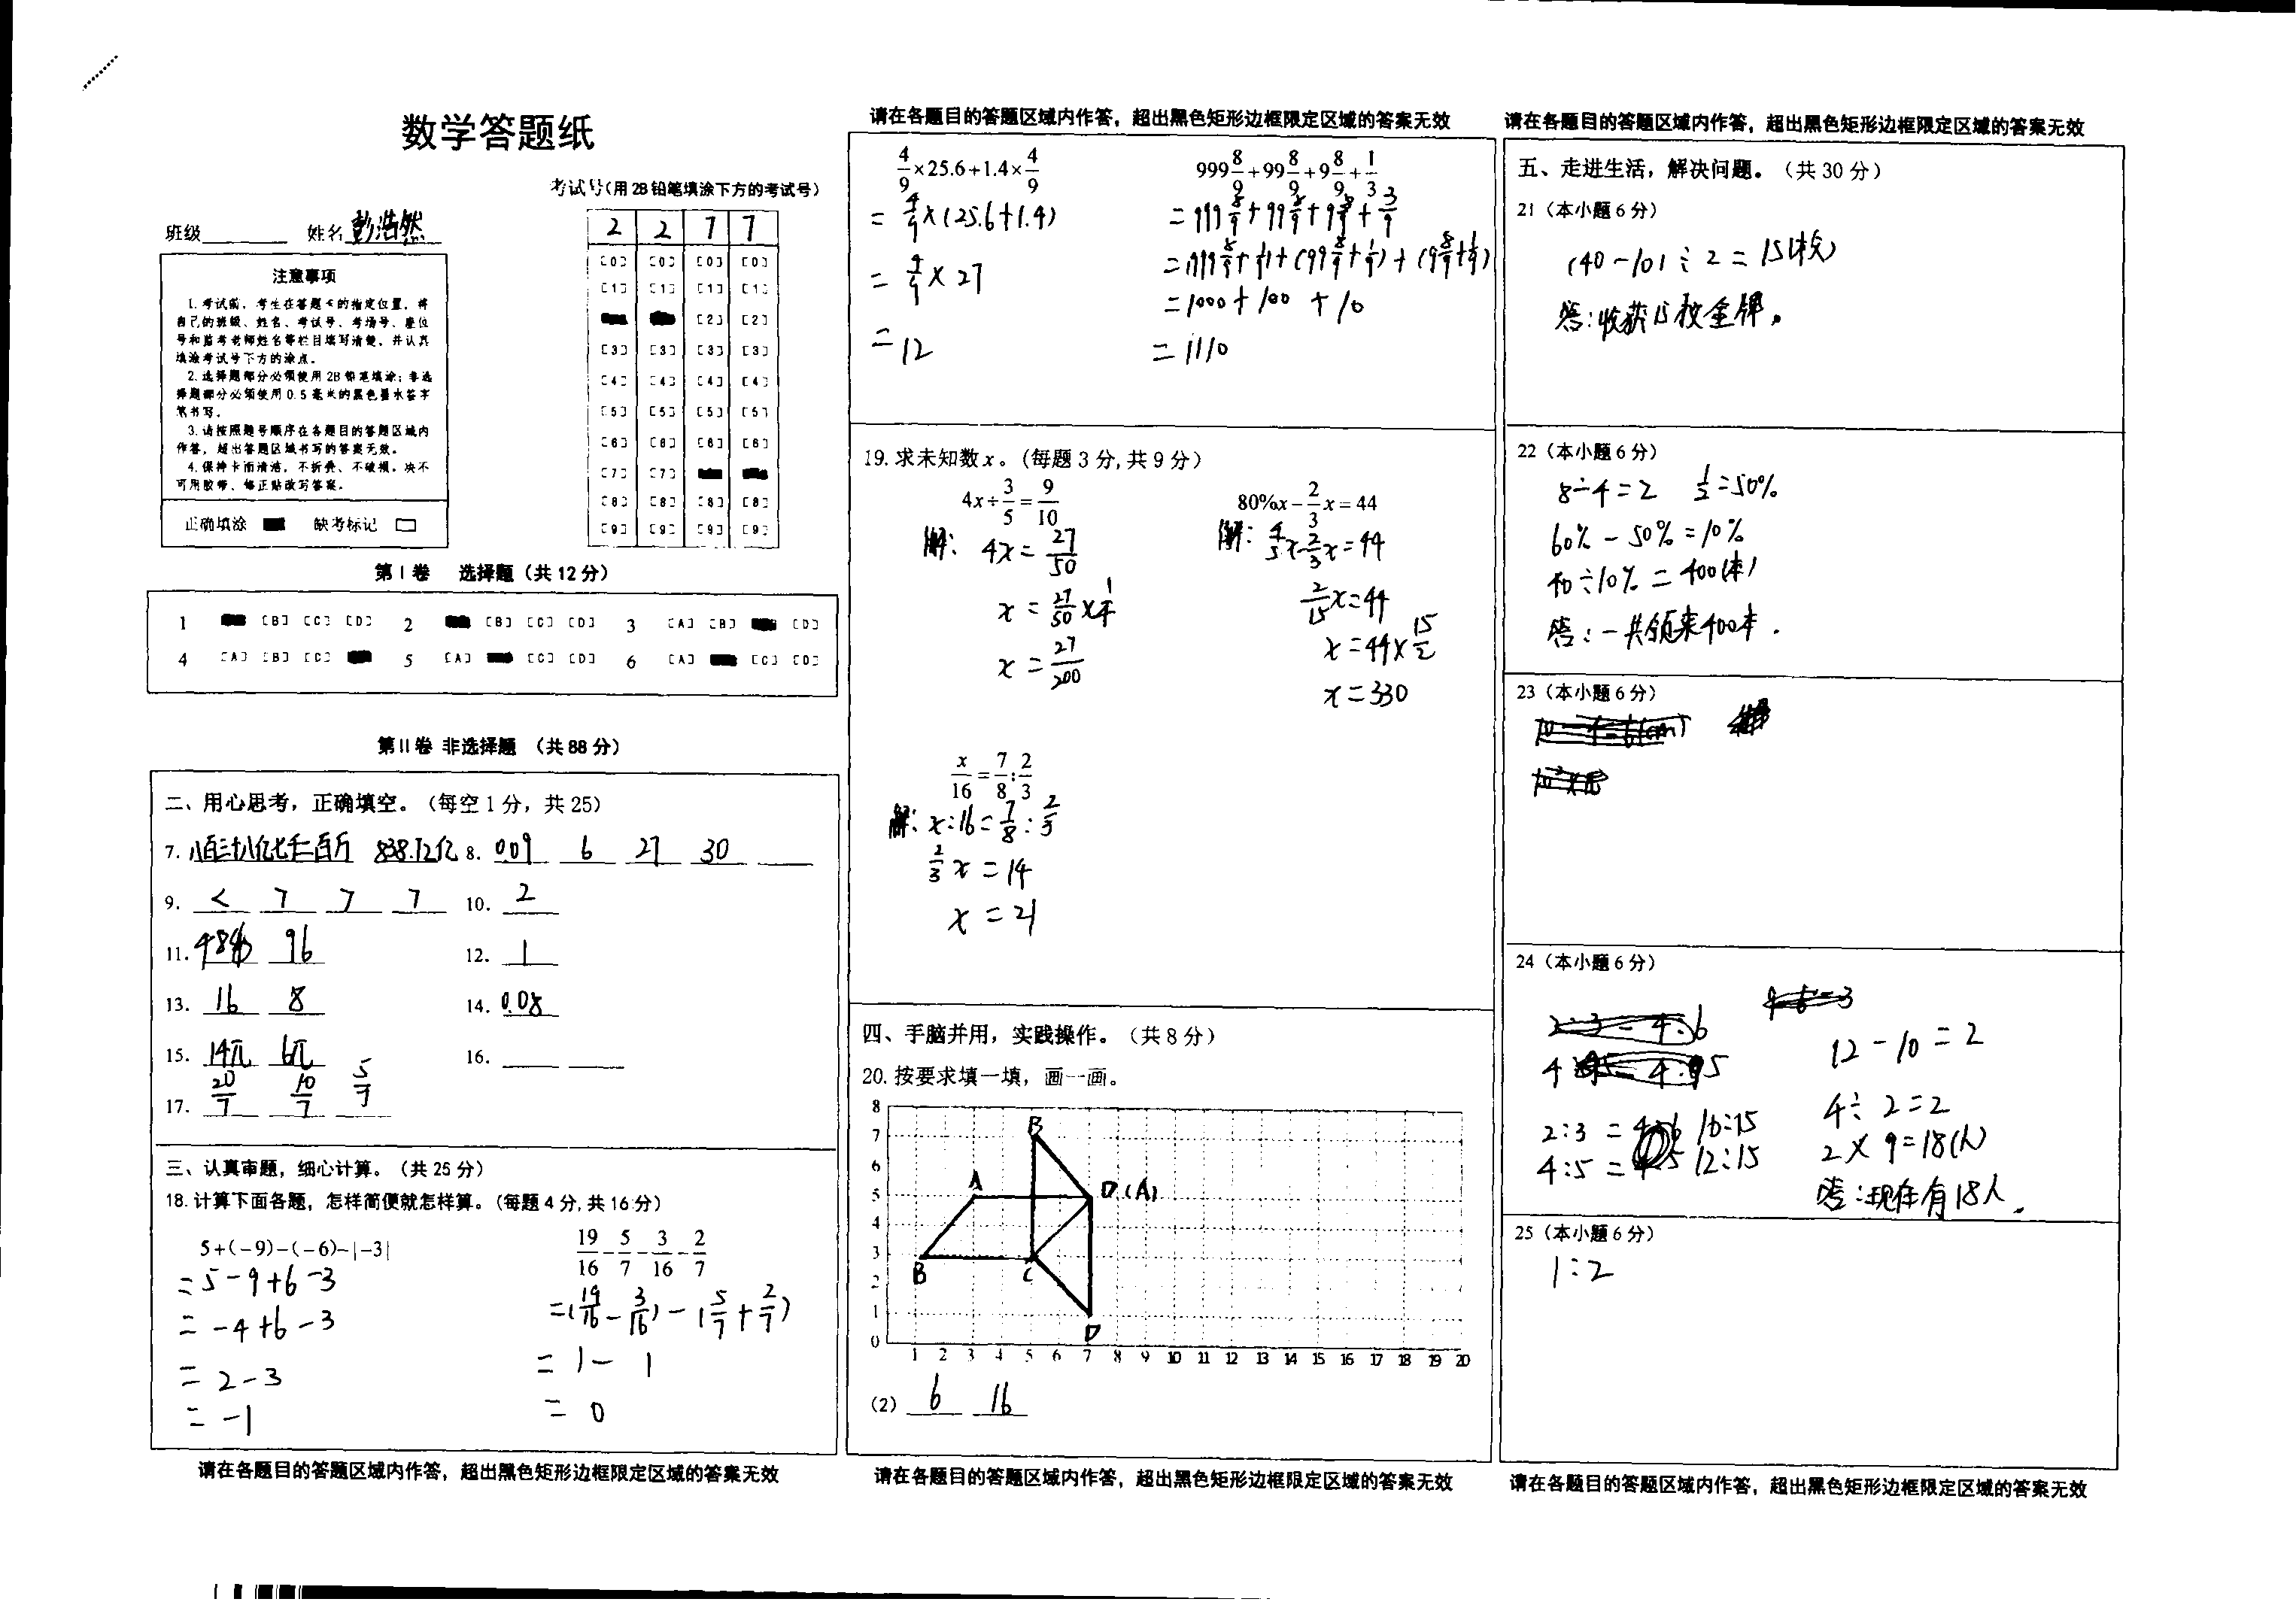 数学答题纸
考试号(用2B铅笔填涂下方的考试号)
班级 姓名 彭浩然
2 2 7 7
注意事项
1.考试前,考生在答题卡的指定位置,将
自己的班级、姓名、考试号、考场号、座位
号和监考老师姓名等栏目填写清楚,并认真
填涂考试号下方的涂点。
2.选择题部分必须使用2B铅笔填涂;非选
择题部分必须使用0.5毫米的黑色墨水签字
笔书写。
3.请按照题号顺序在各题目的答题区域内
作答,超出答题区域书写的答案无效。
4.保持卡面清洁,不折叠、不破损。决不
可用胶带、修正贴改写答案。
正确填涂 缺考标记
[0] [0] [0] [0]
[1] [1] [1] [1]
[2] [2]
[3] [3] [3] [3]
[4] [4] [4] [4]
[5] [5] [5] [5]
[6] [6] [6] [6]
[7] [7]
[8] [8] [8] [8]
[9] [9] [9] [9]
第Ⅰ卷 选择题(共12分)
1 [B] [C] [D] 2 [B] [C] [D] 3 [A] [B] [D]
4 [A] [B] [C] 5 [A] [C] [D] 6 [A] [C] [D]
第Ⅱ卷 非选择题 (共88分)
二、用心思考,正确填空。(每空1分,共25)
7. 838.72亿 8. 0.09 6 27 30
9. < > > > 10. 2
11. 96 12. 1
13. 16 8 14. 0.08
15. 14π 6π 16.
17. 20/7 10/7 5/7
三、认真审题,细心计算。(共25分)
18.计算下面各题,怎样简便就怎样算。(每题4分,共16分)
5+(-9)-(-6)-|-3|
=5-9+6-3
=-4+6-3
=2-3
=-1
19/16-5/7-3/16-2/7
=(19/16-3/16)-(5/7+2/7)
=1-1
=0
请在各题目的答题区域内作答,超出黑色矩形边框限定区域的答案无效
请在各题目的答题区域内作答,超出黑色矩形边框限定区域的答案无效
4/9×25.6+1.4×4/9
=4/9×(25.6+1.4)
=4/9×27
=12
999 8/9+99 8/9+9 8/9+1/3
=999 8/9+99 8/9+9 8/9+3/9
=(999 8/9+1/9)+(99 8/9+1/9)+(9 8/9+1/9)
=1000+100+10
=1110
19.求未知数x。(每题3分,共9分)
4x÷3/5=9/10
解: 4x=27/50
x=27/50×1/4
x=27/200
80%x-2/3x=44
解: 4/5x-2/3x=44
2/15x=44
x=44×15/2
x=330
x/16=7/8:2/3
解: x:16=7/8:2/3
2/3x=14
x=21
四、手脑并用,实践操作。(共8分)
20.按要求填一填,画一画。
8
7 B
6
5 A D(A)
4
3 B C
2
1 D
0
1 2 3 4 5 6 7 8 9 10 11 12 13 14 15 16 17 18 19 20
(2) 6 16
请在各题目的答题区域内作答,超出黑色矩形边框限定区域的答案无效
请在各题目的答题区域内作答,超出黑色矩形边框限定区域的答案无效
五、走进生活,解决问题。(共30分)
21(本小题6分)
(40-10)÷2=15(枚)
答:收获15枚金牌。
22(本小题6分)
8÷4=2 1/2=50%
60%-50%=10%
40÷10%=400(本)
答:一共领来400本.
23(本小题6分)
24(本小题6分)
2:3= 10:15
4:5= 12:15
12-10=2
4÷2=2
2×9=18(人)
答:现在有18人.
25(本小题6分)
1:2
请在各题目的答题区域内作答,超出黑色矩形边框限定区域的答案无效